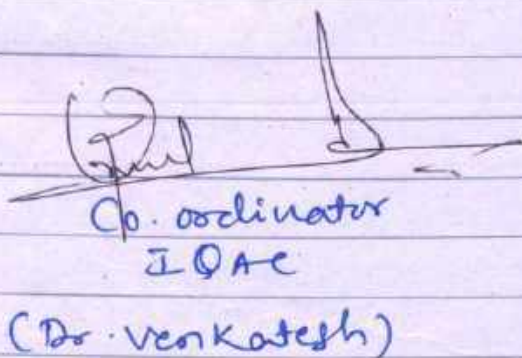 Co. ordinator
IQAC
(Dr. Venkatesh)